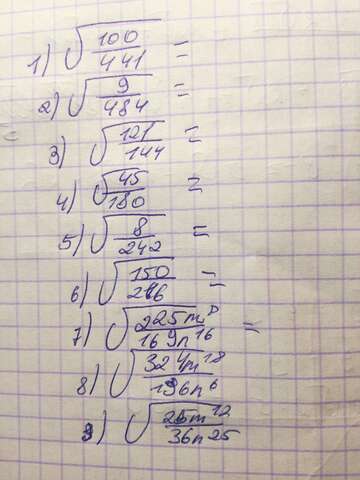 1) √(100/441) =
2) √(9/484) =
3) √(121/144) =
4) √(45/180) =
5) √(8/242) =
6) √(150/216) =
7) √(225m⁸/169n¹⁶) =
8) √(324m¹⁸/196n⁶)
9) √(25m¹²/36n²⁵)